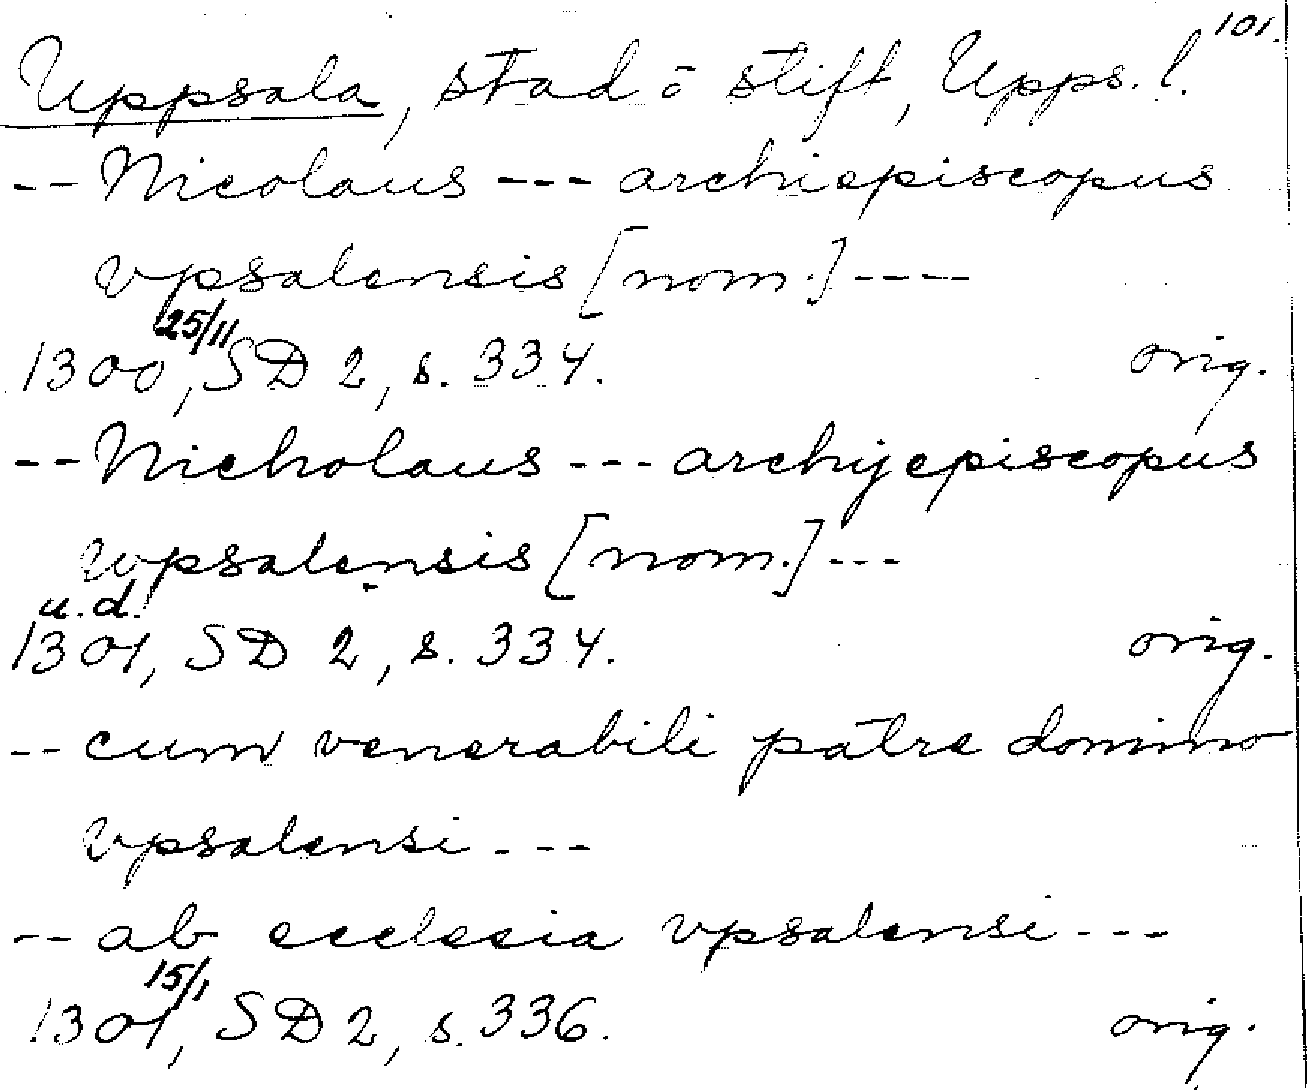 101.
Uppsala, stad o stift, Upps. l.
-- Nicolaus --- archiepiscopus
vpsalensis [nom.] ----
1300 25/11, SD 2, s. 334. orig.
-- Nicholaus --- archijepiscopus
wpsalensis [nom.] ---
u.d.
1301, SD 2, s. 334. orig.
-- cum venerabili patre domino
vpsalensi ---
-- ab ecclesia vpsalensi ---
1301 15/1, SD 2, s. 336. orig.